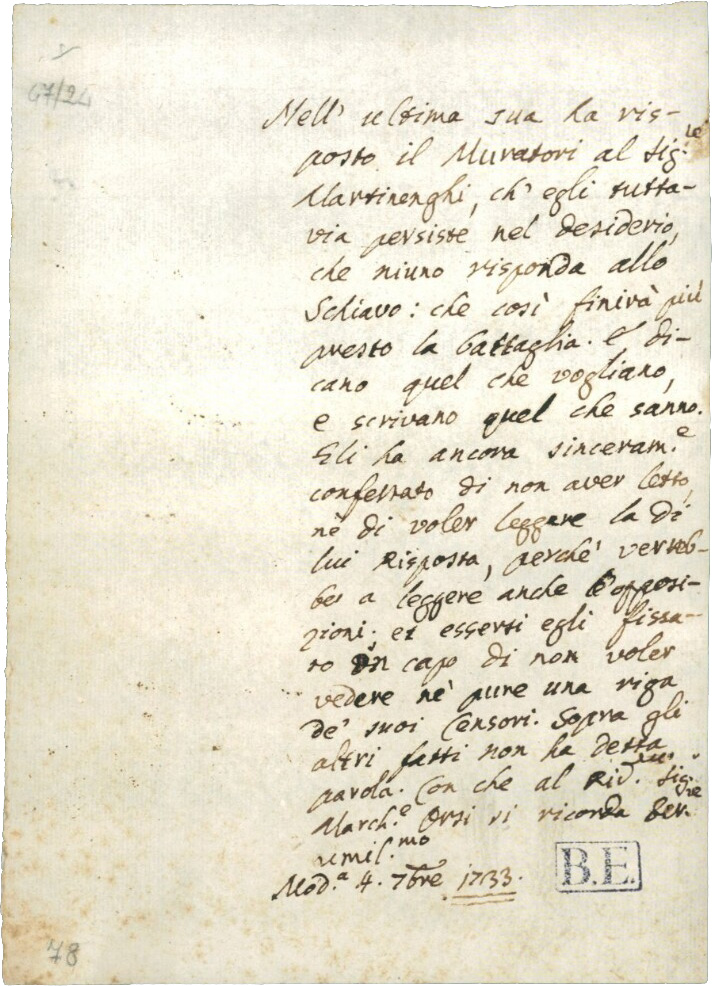 67/24
Nell' ultima sua ha ris-
posto il Muratori al Sig.re
Martinenghi, ch' egli tutta-
via persiste nel desiderio,
che niuno risponda allo
Schiavo: che così finirà più
presto la battaglia. E di-
cano quel che vogliano,
e scrivano quel che sanno.
Gli ha ancora sinceram.e
confessato di non aver letto,
nè di voler leggere la di
lui Risposta, perchè verreb-
be a leggere anche l'opposi-
zioni; et essersi egli fissa-
to in capo di non voler
vedere nè pure una riga
de' suoi Censori. Sopra gli
altri fatti non ha detta
parola. Con che al Sig.re
March.e Orsi si ricorda Ser.re
umil.mo
Mod.a 4. 7bre 1733.
B.E.
78